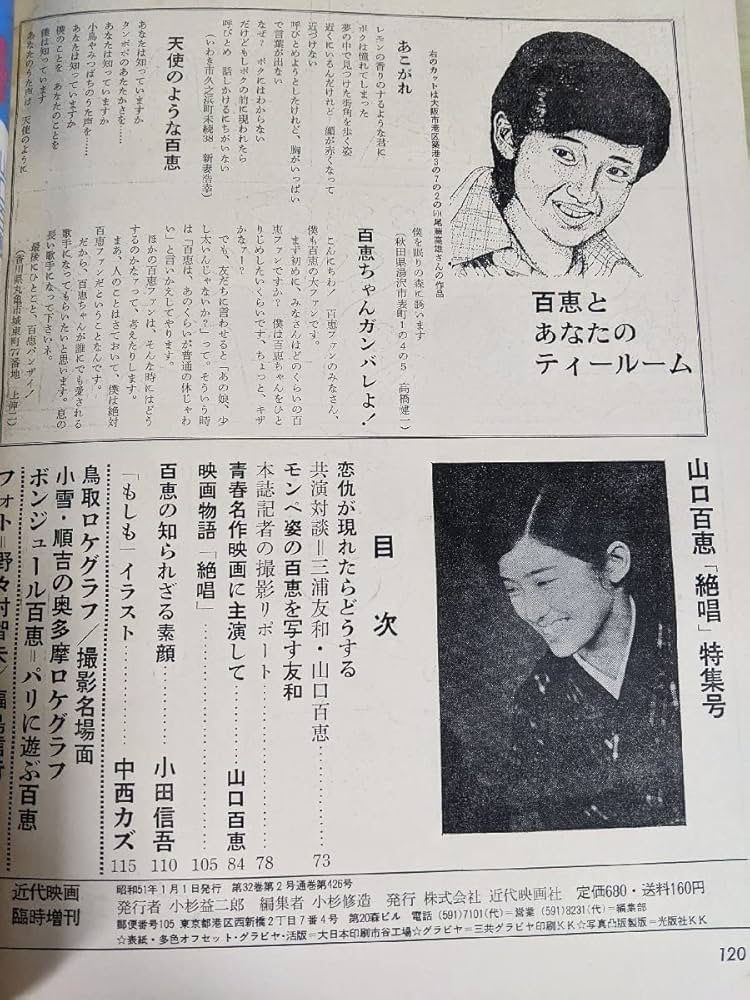 百恵と
あなたの
ティールーム
右のカットは大阪市港区築港3の7の2の 尾藤高雄さんの作品
あこがれ
レモンの香りのするような君に
ボクは憧れてしまった
夢の中で見つけた街角を歩く姿
近くにいるんだけれど 顔が赤くなって
近づけない
呼びとめようとしたけれど、胸がいっぱい
で言葉が出ない
なぜ? ボクにはわからない
だけどもしボクの前に現われたら
呼びとめ 話しかけるにちがいない
(いわき市久之浜町末続38 新妻浩幸)
天使のような百恵
あなたは知っていますか
タンポポのあたたかさを……
あなたは知っていますか
小鳥やみつばちのうた声を……
あなたは知っていますか
僕のことを あなたのことを
僕は知っています
あなたのうた声は 天使のように
僕を眠りの森に誘います
(秋田県湯沢市表町1の4の5 高橋健二)
百恵ちゃんガンバレよ!
こんにちわ! 百恵ファンのみなさん、
僕も百恵の大ファンです。
まず初めに、みなさんはどのくらいの百
恵ファンですか? 僕は百恵ちゃんをひと
りじめしたいくらいです、ちょっと、キザ
かなァー?
でも、友だちに言わせると「あの娘、少
し太いんじゃないか?」って。そういう時
は「百恵は、あのくらいが普通の体じゃわ
い」と言いかえしてやります。
ほかの百恵ファンは、そんな時にはどう
するのかなァって、考えたりします。
まあ、人のことはさておいて、僕は絶対
百恵ファンだということなんです。
だから、百恵ちゃんが誰にでも愛される
歌手になってもらいたいと思います。息の
長い歌手になって下さいネ。
最後にひとこと、百恵バンザイ!
(香川県丸亀市城東町77番地 上伸二)
山口百恵「絶唱」特集号
目次
恋仇が現れたらどうする
共演対談=三浦友和・山口百恵…………73
モンペ姿の百恵を写す友和
本誌記者の撮影リポート…………78
青春名作映画に主演して…………山口百恵 84
映画物語「絶唱」…………105
百恵の知られざる素顔…………小田信吾 110
「もしも」イラスト…………中西カズ 115
鳥取ロケグラフ/撮影名場面
小雪・順吉の奥多摩ロケグラフ
ボンジュール百恵=パリに遊ぶ百恵
近代映画
臨時増刊
昭和51年1月1日発行 第32巻第2号通巻第426号
発行者 小杉益二郎 編集者 小杉修造 発行 株式会社 近代映画社 定価680・送料160円
郵便番号105 東京都港区西新橋2丁目7番4号 第20森ビル 電話(591)7101(代)=営業(591)8231(代)=編集部
☆表紙・多色オフセット・グラビヤ・活版=大日本印刷市谷工場☆グラビヤ=三共グラビヤ印刷KK☆写真凸版製版=光版社KK
120